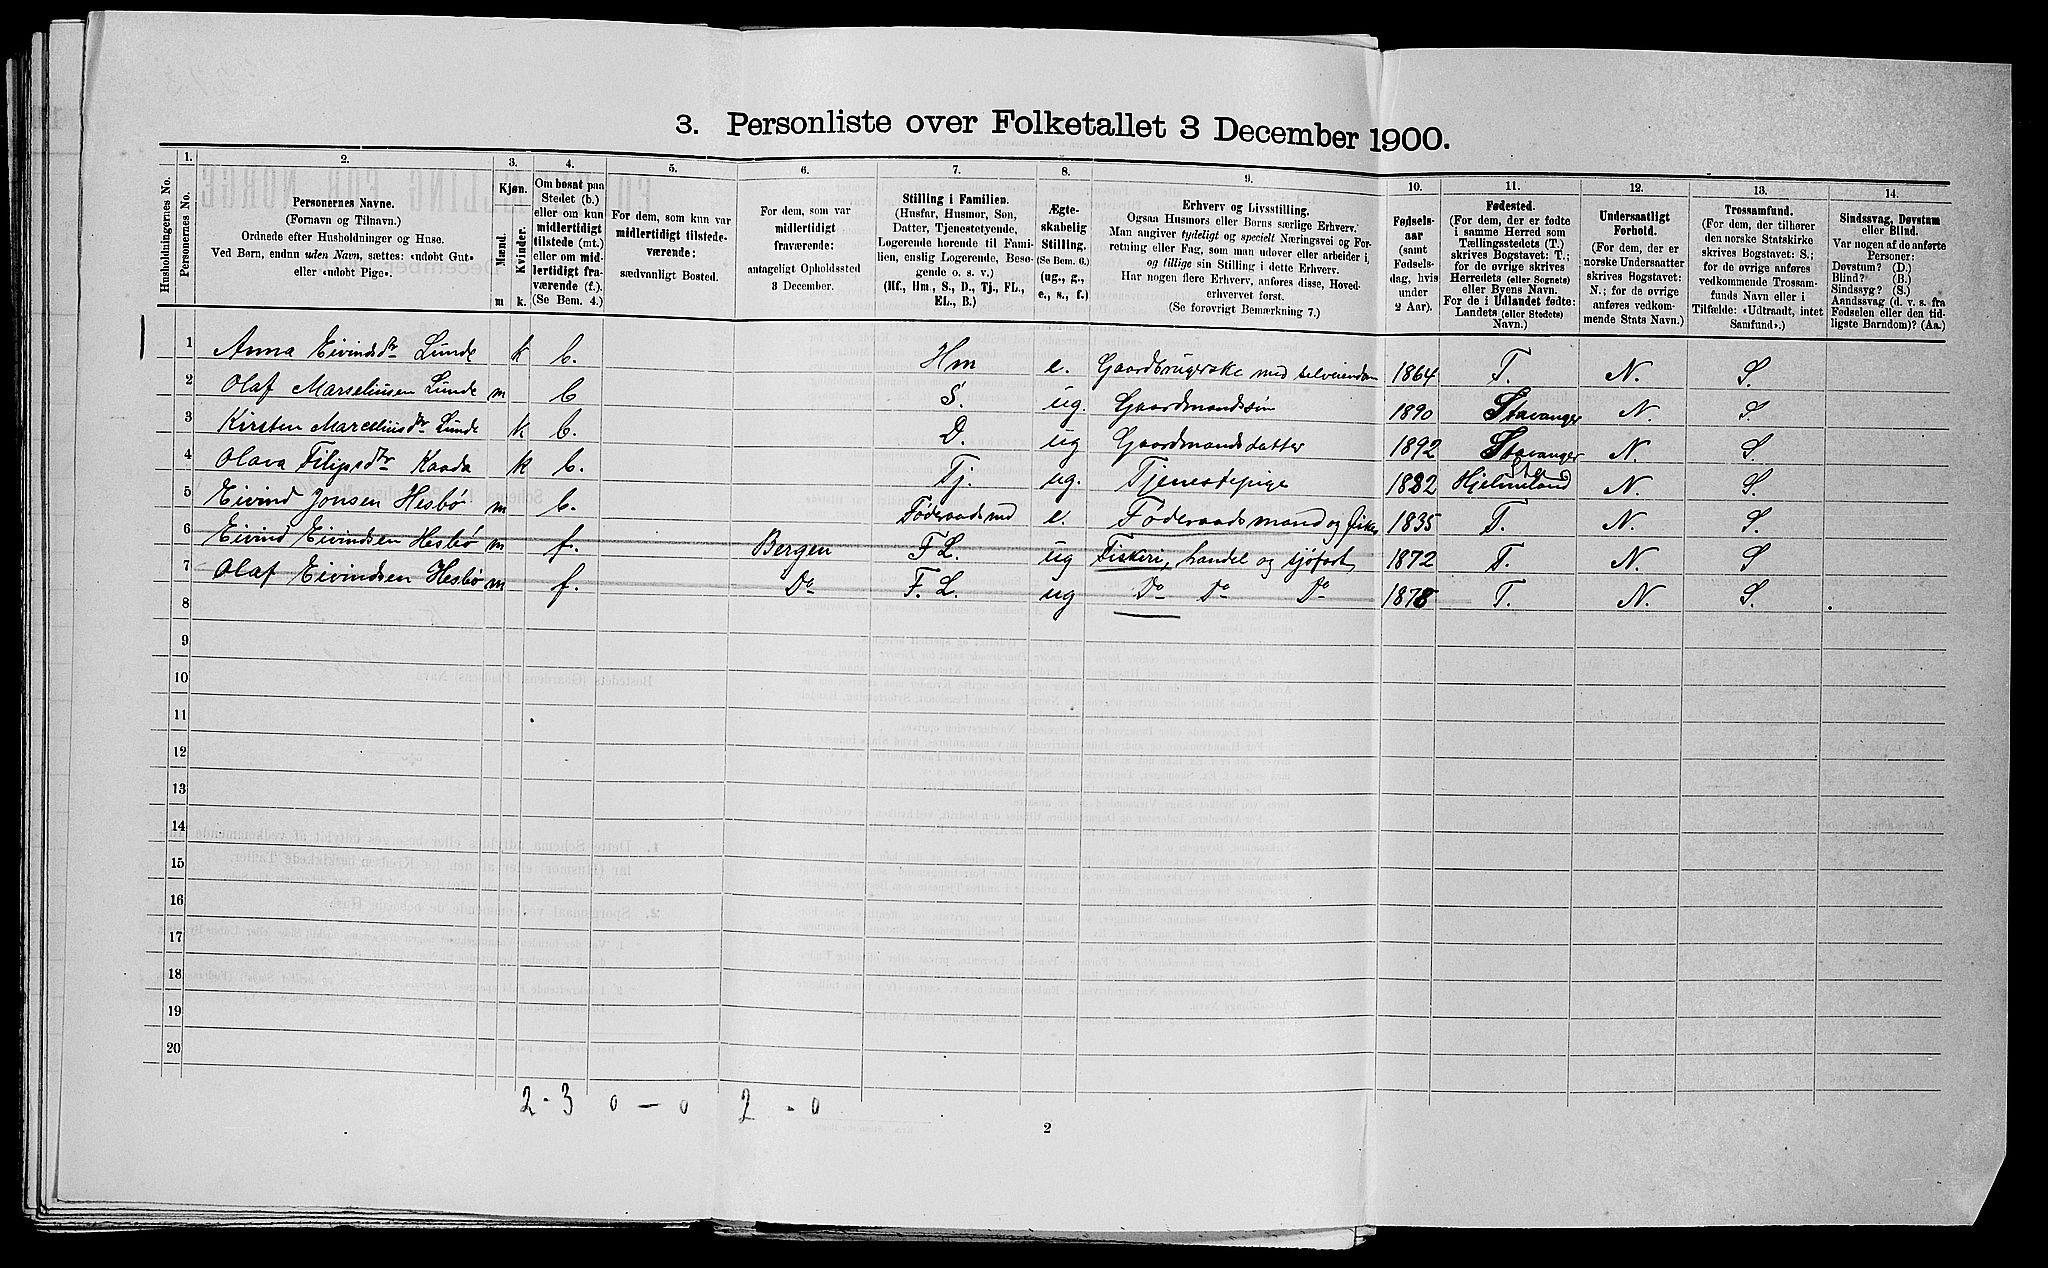 3. Personliste over Folketallet 3 December 1900.
Husholdningernes No.
1.
Personernes No.
2.
Personernes Navne.
(Fornavn og Tilnavn.)
Ordnede efter Husholdninger og Huse.
Ved Børn, endnu uden Navn, sættes: «udøbt Gut»
eller «udøbt Pige».
3.
Kjøn.
Mænd.
Kvinder.
m k.
4.
Om bosat paa
Stedet (b.)
eller om kun
midlertidigt
tilstede (mt.)
eller om mid-
lertidigt fra-
værende (f.).
(Se Bem. 4.)
5.
For dem, som kun var
midlertidigt tilstede-
værende:
sædvanligt Bosted.
6.
For dem, som var
midlertidigt
fraværende:
antageligt Opholdssted
3 December.
7.
Stilling i Familien.
(Husfar, Husmor, Søn,
Datter, Tjenestetyende,
Logerende hørende til Fami-
lien, enslig Logerende, Besø-
gende o. s. v.)
(Hf., Hm., S., D., Tj., FL.,
EL., B.)
8.
Ægte-
skabelig
Stilling.
(Se Bem. 6.)
(ug., g.,
e., s., f.)
9.
Erhverv og Livsstilling.
Ogsaa Husmors eller Børns særlige Erhverv.
Man angiver tydeligt og specielt Næringsvei og For-
retning eller Fag, som man udøver eller arbeider i,
og tillige sin Stilling i dette Erhverv.
Har nogen flere Erhverv, anføres disse, Hoved-
erhvervet først.
(Se forøvrigt Bemærkning 7.)
10.
Fødsels-
aar
(samt
Fødsels-
dag, hvis
under
2 Aar).
11.
Fødested.
(For dem, der er fødte
i samme Herred som
Tællingsstedets (T.)
skrives Bogstavet: T.;
for de øvrige skrives
Herredets (eller Sognets)
eller Byens Navn.
For de i Udlandet fødte:
Landets (eller Stedets)
Navn.)
12.
Undersaatligt
Forhold.
(For dem, der er
norske Undersaatter
skrives Bogstavet:
N.; for de øvrige
anføres vedkom-
mende Stats Navn.)
13.
Trossamfund.
(For dem, der tilhører
den norske Statskirke
skrives Bogstavet: S.;
for de øvrige anføres
vedkommende Trossam-
funds Navn eller i
Tilfælde: «Udtraadt, intet
Samfund».)
14.
Sindssvag, Døvstum
eller Blind.
Var nogen af de anførte
Personer:
Døvstum? (D.)
Blind? (B.)
Sindssyg? (S.)
Aandssvag (d. v. s. fra
Fødselen eller den tid-
ligste Barndom)? (Aa.)
1 Anna Eivindsdtr Lunde k b. Hm e. Gaardbrugerske med selveiendom 1864 T. N. S.
2 Olaf Marseliusen Lunde m b S. ug. Gaardmandssøn 1890 Stavanger N. S.
3 Kirsten Marceliusdtr Lunde k b. D. ug Gaardmandsdatter 1892 Stavanger N. S.
4 Olava Filipsdtr Kaada k b. Tj. ug. Tjenestepige 1882 Hjelmeland N. S.
5 Eivind Jonsen Hesbø m b. Föderaadsmd e. Föderaadsmand og fisker 1835 T. N. S.
6 Eivind Eivindsen Hesbø m f. Bergen F L. ug Fiskeri, handel og sjöfart 1872 T. N. S
7 Olaf Eivindsen Hesbø m f. Do F. L. ug Do Do Do 1878 T. N. S.
8
9
10
11
12
13
14
15
16
17
18
19
20
2 - 3 0 - 0 2 - 0
2